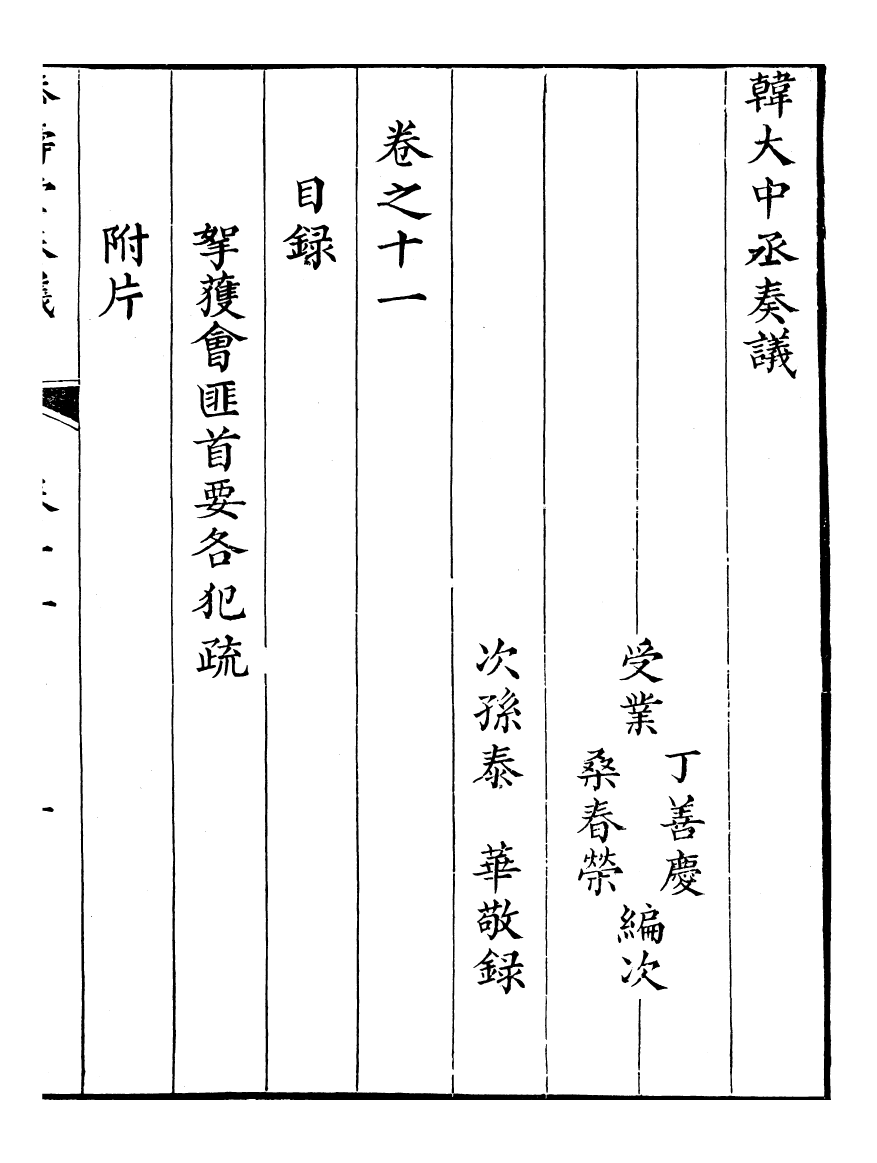 韓大中丞奏議
受業
丁善慶
桑春榮
編次
次孫泰　華敬録
卷之十一
目録
拏獲會匪首要各犯疏
附片